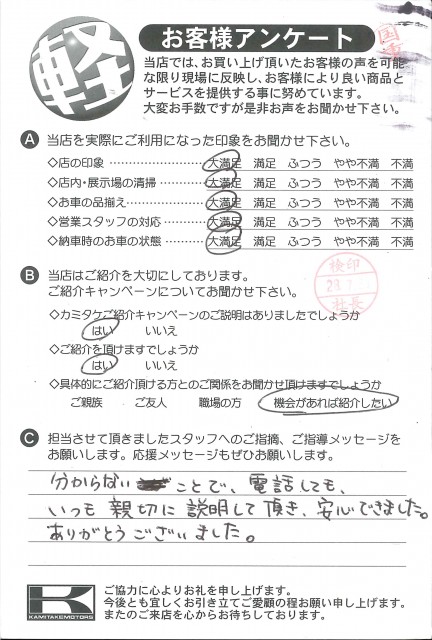 軽
お客様アンケート
当店では、お買い上げ頂いたお客様の声を可能
な限り現場に反映し、お客様により良い商品と
サービスを提供する事に努めています。
大変お手数ですが是非お声をお聞かせ下さい。
A 当店を実際にご利用になった印象をお聞かせ下さい。
◇店の印象 大満足 満足 ふつう やや不満 不満
◇店内・展示場の清掃 大満足 満足 ふつう やや不満 不満
◇お車の品揃え 大満足 満足 ふつう やや不満 不満
◇営業スタッフの対応 大満足 満足 ふつう やや不満 不満
◇納車時のお車の状態 大満足 満足 ふつう やや不満 不満
B 当店はご紹介を大切にしております。
ご紹介キャンペーンについてお聞かせ下さい。
検印
社長
◇カミタケご紹介キャンペーンのご説明はありましたでしょうか
はい いいえ
◇ご紹介を頂けますでしょうか
はい いいえ
◇具体的にご紹介頂ける方とのご関係をお聞かせ頂けますでしょうか
ご親族 ご友人 職場の方 機会があれば紹介したい
C 担当させて頂きましたスタッフへのご指摘、ご指導メッセージを
お願いします。応援メッセージもぜひお願いします。
分からないことで、電話しても、
いつも親切に説明して頂き、安心できました。
ありがとうございました。
K
KAMITAKEMOTORS
ご協力に心よりお礼を申し上げます。
今後とも宜しくお引き立てご愛顧の程お願い申し上げます。
またのご来店を心からお待ちしております。